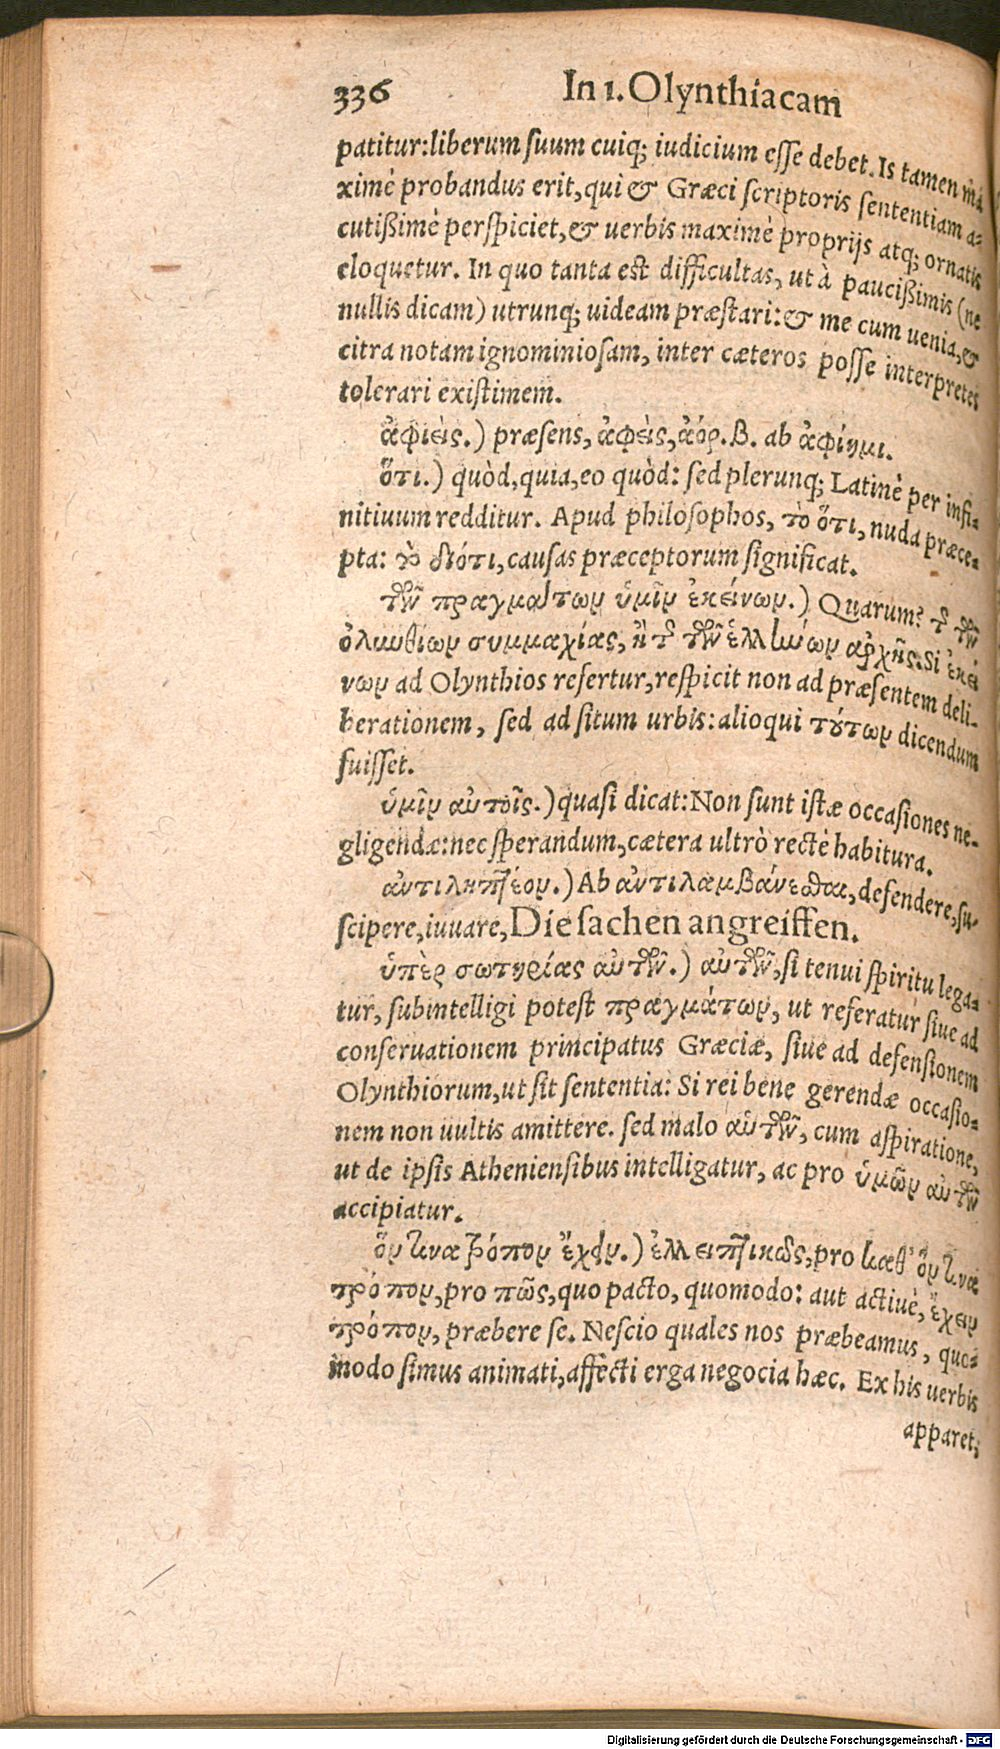 336 In 1. Olynthiacam
patitur: liberum suum cuiq; iudicium esse debet. Is tamen ma
ximè probandus erit, qui & Græci scriptoris sententiam a-
cutißimè perspiciet, & uerbis maximè proprijs atq; ornatis
eloquetur. In quo tanta est difficultas, ut à paucißimis (ne
nullis dicam) utrunq; uideam præstari: & me cum uenia, &
citra notam ignominiosam, inter cæteros posse interpretes
tolerari existimem.
ἀφιεὶς.) præsens, ἀφεὶς, ἀόρ. β. ab ἀφίημι.
ὅτι.) quòd, quia, eo quòd: sed plerunq; Latinè per infi-
nitiuum redditur. Apud philosophos, τὸ ὅτι, nuda præce-
pta: τὸ διότι, causas præceptorum significat.
τῶν πραγμάτων ὑμῖν ἐκείνων.) Quarum? τῆς τῶν
ὀλυνθίων συμμαχίας, ἢ τῆς τῶν ἑλλήνων αρχῆς. Si ἐκεί
νων ad Olynthios refertur, respicit non ad præsentem deli-
berationem, sed ad situm urbis: alioqui τούτων dicendum
fuisset.
ὑμῖν αὐτοῖς.) quasi dicat: Non sunt istæ occasiones ne-
gligendæ: nec sperandum, cætera ultrò rectè habitura.
αντιληπτέον.) Ab αντιλαμβάνεσθαι, defendere, su-
scipere, iuuare, Die sachen angreiffen.
ὑπὲρ σωτηρίας αὐτῶν.) αὐτῶν, si tenui spiritu lega-
tur, subintelligi potest πραγμάτων, ut referatur siue ad
conseruationem principatus Græciæ, siue ad defensionem
Olynthiorum, ut sit sententia: Si rei bene gerendæ occasio-
nem non uultis amittere. sed malo αὑτῶν, cum aspiratione,
ut de ipsis Atheniensibus intelligatur, ac pro ὑμῶν αὐτῶν
accipiatur.
ὅν τινα τρόπον ἔχειν.) ἐλλειπτικῶς, pro καθ' ὅν τινα
τρόπον, pro πῶς, quo pacto, quomodo: aut actiuè, ἔχειν
τρόπον, præbere se. Nescio quales nos præbeamus, quo-
modo simus animati, affecti erga negocia hæc. Ex his uerbis
apparet,
Digitalisierung gefördert durch die Deutsche Forschungsgemeinschaft - DFG